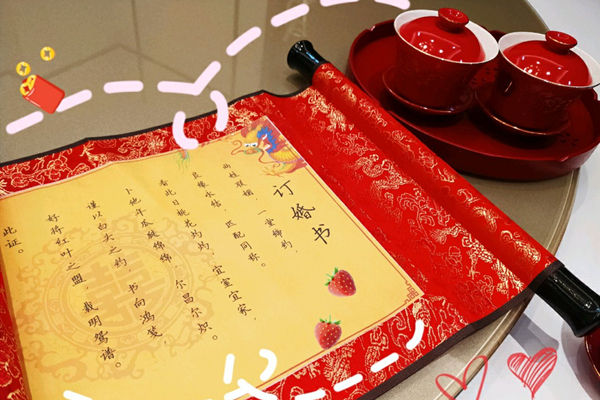 订婚书
两姓联姻，一堂缔约，
良缘永结，匹配同称。
看此日桃花灼灼，宜室宜家，
卜他年瓜瓞绵绵，尔昌尔炽。
谨以白头之约，书向鸿笺，
好将红叶之盟，载明鸳谱。
此证。